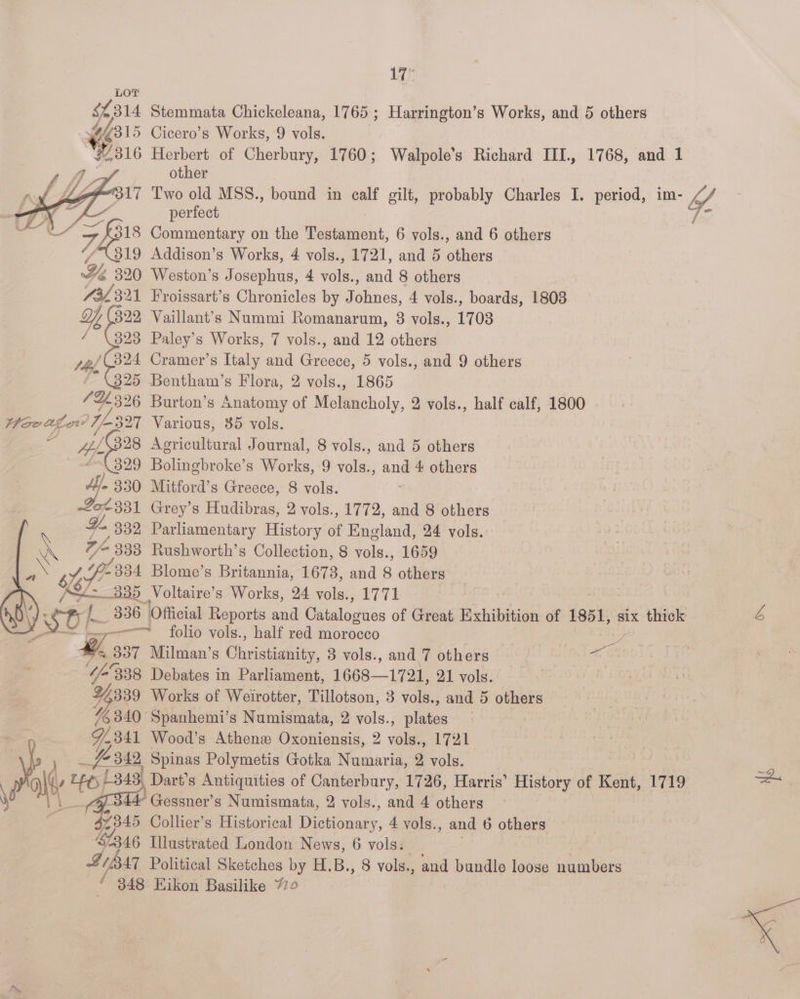 17
LOT
314 Stemmata Chickeleana, 1765; Harrington's Works, and 5 others
315 Cicero's Works, 9 vols.
316 Herbert of Cherbury, 1760; Walpole's Richard III., 1768, and 1
other
317 Two old MSS., bound in calf gilt, probably Charles I. period, im-
perfect
318 Commentary on the Testament, 6 vols., and 6 others
319 Addison's Works, 4 vols., 1721, and 5 others
320 Weston's Josephus, 4 vols., and 8 others
321 Froissart's Chronicles by Johnes, 4 vols., boards, 1803
322 Vaillant's Nummi Romanarum, 3 vols., 1703
323 Paley's Works, 7 vols., and 12 others
324 Cramer's Italy and Greece, 5 vols., and 9 others
325 Bentham's Flora, 2 vols., 1865
326 Burton's Anatomy of Melancholy, 2 vols., half calf, 1800
327 Various, 35 vols.
328 Agricultural Journal, 8 vols., and 5 others
329 Bolingbroke's Works, 9 vols., and 4 others
330 Mitford's Greece, 8 vols.
331 Grey's Hudibras, 2 vols., 1772, and 8 others
332 Parliamentary History of England, 24 vols.
333 Rushworth's Collection, 8 vols., 1659
334 Blome's Britannia, 1673, and 8 others
335 Voltaire's Works, 24 vols., 1771
336 Official Reports and Catalogues of Great Exhibition of 1851, six thick
folio vols., half red morocco
337 Milman's Christianity, 3 vols., and 7 others
338 Debates in Parliament, 1668—1721, 21 vols.
339 Works of Weirotter, Tillotson, 3 vols., and 5 others
340 Spanhemi's Numismata, 2 vols., plates
341 Wood's Athenæ Oxoniensis, 2 vols., 1721
342 Spinas Polymetis Gotka Numaria, 2 vols.
343 Dart's Antiquities of Canterbury, 1726, Harris' History of Kent, 1719
344 Gessner's Numismata, 2 vols., and 4 others
345 Collier's Historical Dictionary, 4 vols., and 6 others
346 Illustrated London News, 6 vols.
347 Political Sketches by H.B., 8 vols., and bundle loose numbers
348 Eikon Basilike